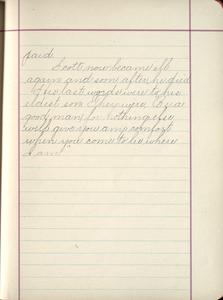 paid.
Scott now became ill
again and soon after he died
His last words were to his
eldest son. They were, "Be a
good man for nothing else
will give you any comfort
when you come to lie where
I am."